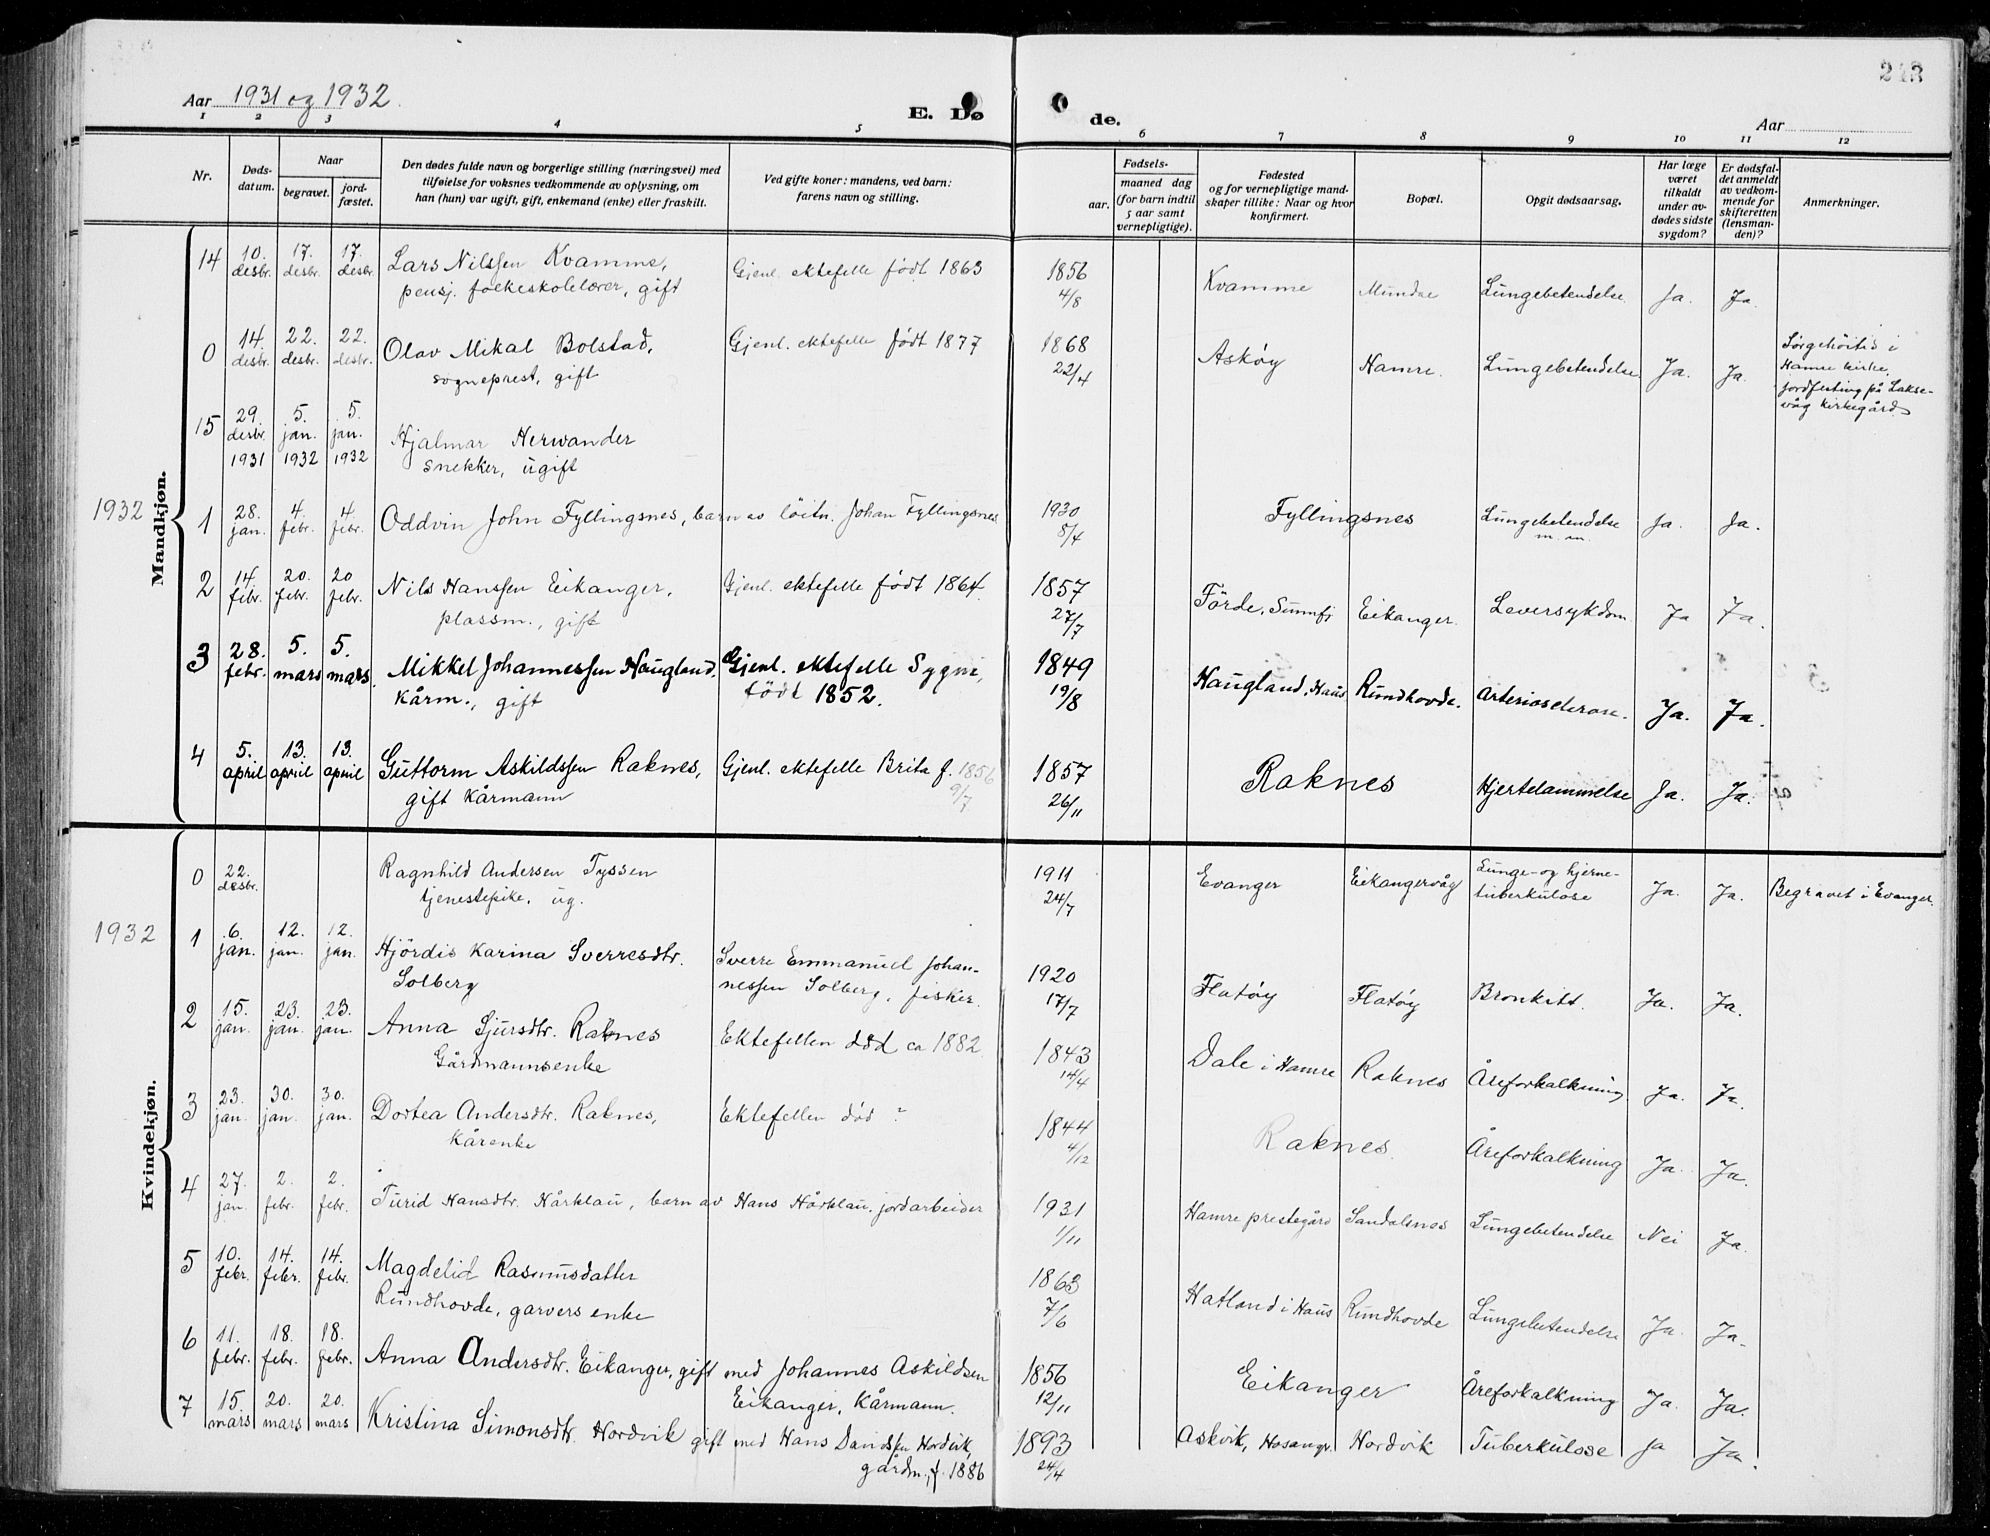 243
Aar 1931 og 1932.
E. Dø de.
Aar
1 2 3 4 5 6 7 8 9 10 11 12
Nr.
Døds-
datum.
Naar
begravet.
jord-
fæstet.
Den dødes fulde navn og borgerlige stilling (næringsvei) med
tilføielse for voksnes vedkommende av oplysning, om
han (hun) var ugift, gift, enkemand (enke) eller fraskilt.
Ved gifte koner: mandens, ved barn:
farens navn og stilling.
Fødsels-
aar.
maaned dag
(for barn indtil
5 aar samt
vernepligtige).
Fødested
og for vernepligtige mand-
skaper tillike: Naar og hvor
konfirmert.
Bopæl.
Opgit dødsaarsag.
Har læge
været
tilkaldt
under av-
dødes sidste
sygdom?
Er dødsfal-
det anmeldt
av vedkom-
mende for
skifteretten
(lensman-
den)?
Anmerkninger.
Mandkjøn.
14 10. desbr. 17. desbr. 17. desbr. Lars Nilssen Kvamme, Gjenl. ektefelle født 1863 1856
pensj. folkeskolelærer, gift 4/8 Kvamme Mundae Lungebetendelse Ja. Ja.
0 14. desbr. 22. desbr. 22. desbr. Olav Mikal Bolstad, Gjenl. ektefelle født 1877 1868
sogneprest, gift 22/4 Askøy Hamre. Lungebetendelse Ja. Ja.
Sørgehöitid i
Hamre kirke,
jordfesting på Lakse-
våg kirkegård
15 29. desbr. 1931 5. jan. 1932 5. jan. 1932 Hjalmar Herwander
snekker, ugift
1932
1 28. jan. 4. febr. 4. febr. Oddvin John Fyllingsnes, barn av löitn. Johan Fyllingsnes 1930
8/4 Fyllingsnes Lungebetendelse Ja. Ja.
m. m.
2 14. febr. 20. febr. 20 febr. Nils Hanssen Eikanger, Gjenl. ektefelle født 1864. 1857
plassm., gift 27/7 Förde, Sunnfj Eikanger. Leversykdom Ja Ja.
3 28. febr. 5. mars 5. mars. Mikkel Johannessen Haugland, Gjenl. ektefelle Sygni, 1849
kårm., gift født 1852. 19/8 Haugland, Haus Rundhovde. Arteriosclerose. Ja. Ja.
4 5. april 13. april 13. april Guttorm Askildssen Raknes, Gjenl. ektefelle Brita f. 1856 1857
gift kårmann 9/7 26/11 Raknes Hjertelammelse Ja. Ja.
Kvindekjøn.
0 22. desbr. Ragnhild Andersen Tyssen 1911
tjenestepike, ug. 24/7 Evanger Eikangervåg Lunge- og hjerne-
tuberkulose Ja. Ja. Begravet i Evanger.
1932
1 6. jan. 12. jan. 12. jan. Hjördis Karina Sverresdtr. Sverre Emmanuel Johan- 1920
Solberg nessen Solberg, fisker. 17/7 Flatöy Flatöy Bronkitt. Ja. Ja.
2 15. jan. 23. jan. 23. jan. Anna Sjursdtr. Raknes Ektefellen død ca 1882. 1843
Gårdmannsenke 14/4 Dale i Hamre Raknes Åreforkalkning Ja. Ja.
3 23. jan. 30. jan. 30. jan. Dortea Andersdtr. Raknes, Ektefellen död ? 1844
kårenke 4/12 Raknes. Åreforkalkning Ja. Ja.
4 27. jan. 2. febr. 2. febr. Turid Hansdtr. Hårklau, barn av Hans Hårklau, jordarbeider 1931
1/11 Hamre prestegård Sandalsnes Lungebetendelse Nei Ja.
5 10. febr. 14. febr. 14. febr. Magdelid Rasmusdatter 1863
Rundhovde, garvers enke 7/6 Hatland i Haus Rundhovde Lungebetendelse Ja. Ja.
6 11. febr. 18. febr. 18. febr. Anna Andersdtr. Eikanger, gift med Johannes Askildsen 1856
Eikanger, Kårmann. 12/11 Eikanger Åreforkalkning Ja. Ja.
7 15. mars 20. mars 20. mars Kristina Simonsdtr. Nordvik gift med Hans Nordvik, 1893
gårdm., f. 1886 24/4 Askvik, Hosangr. Nordvik Tuberkulose Ja Ja.